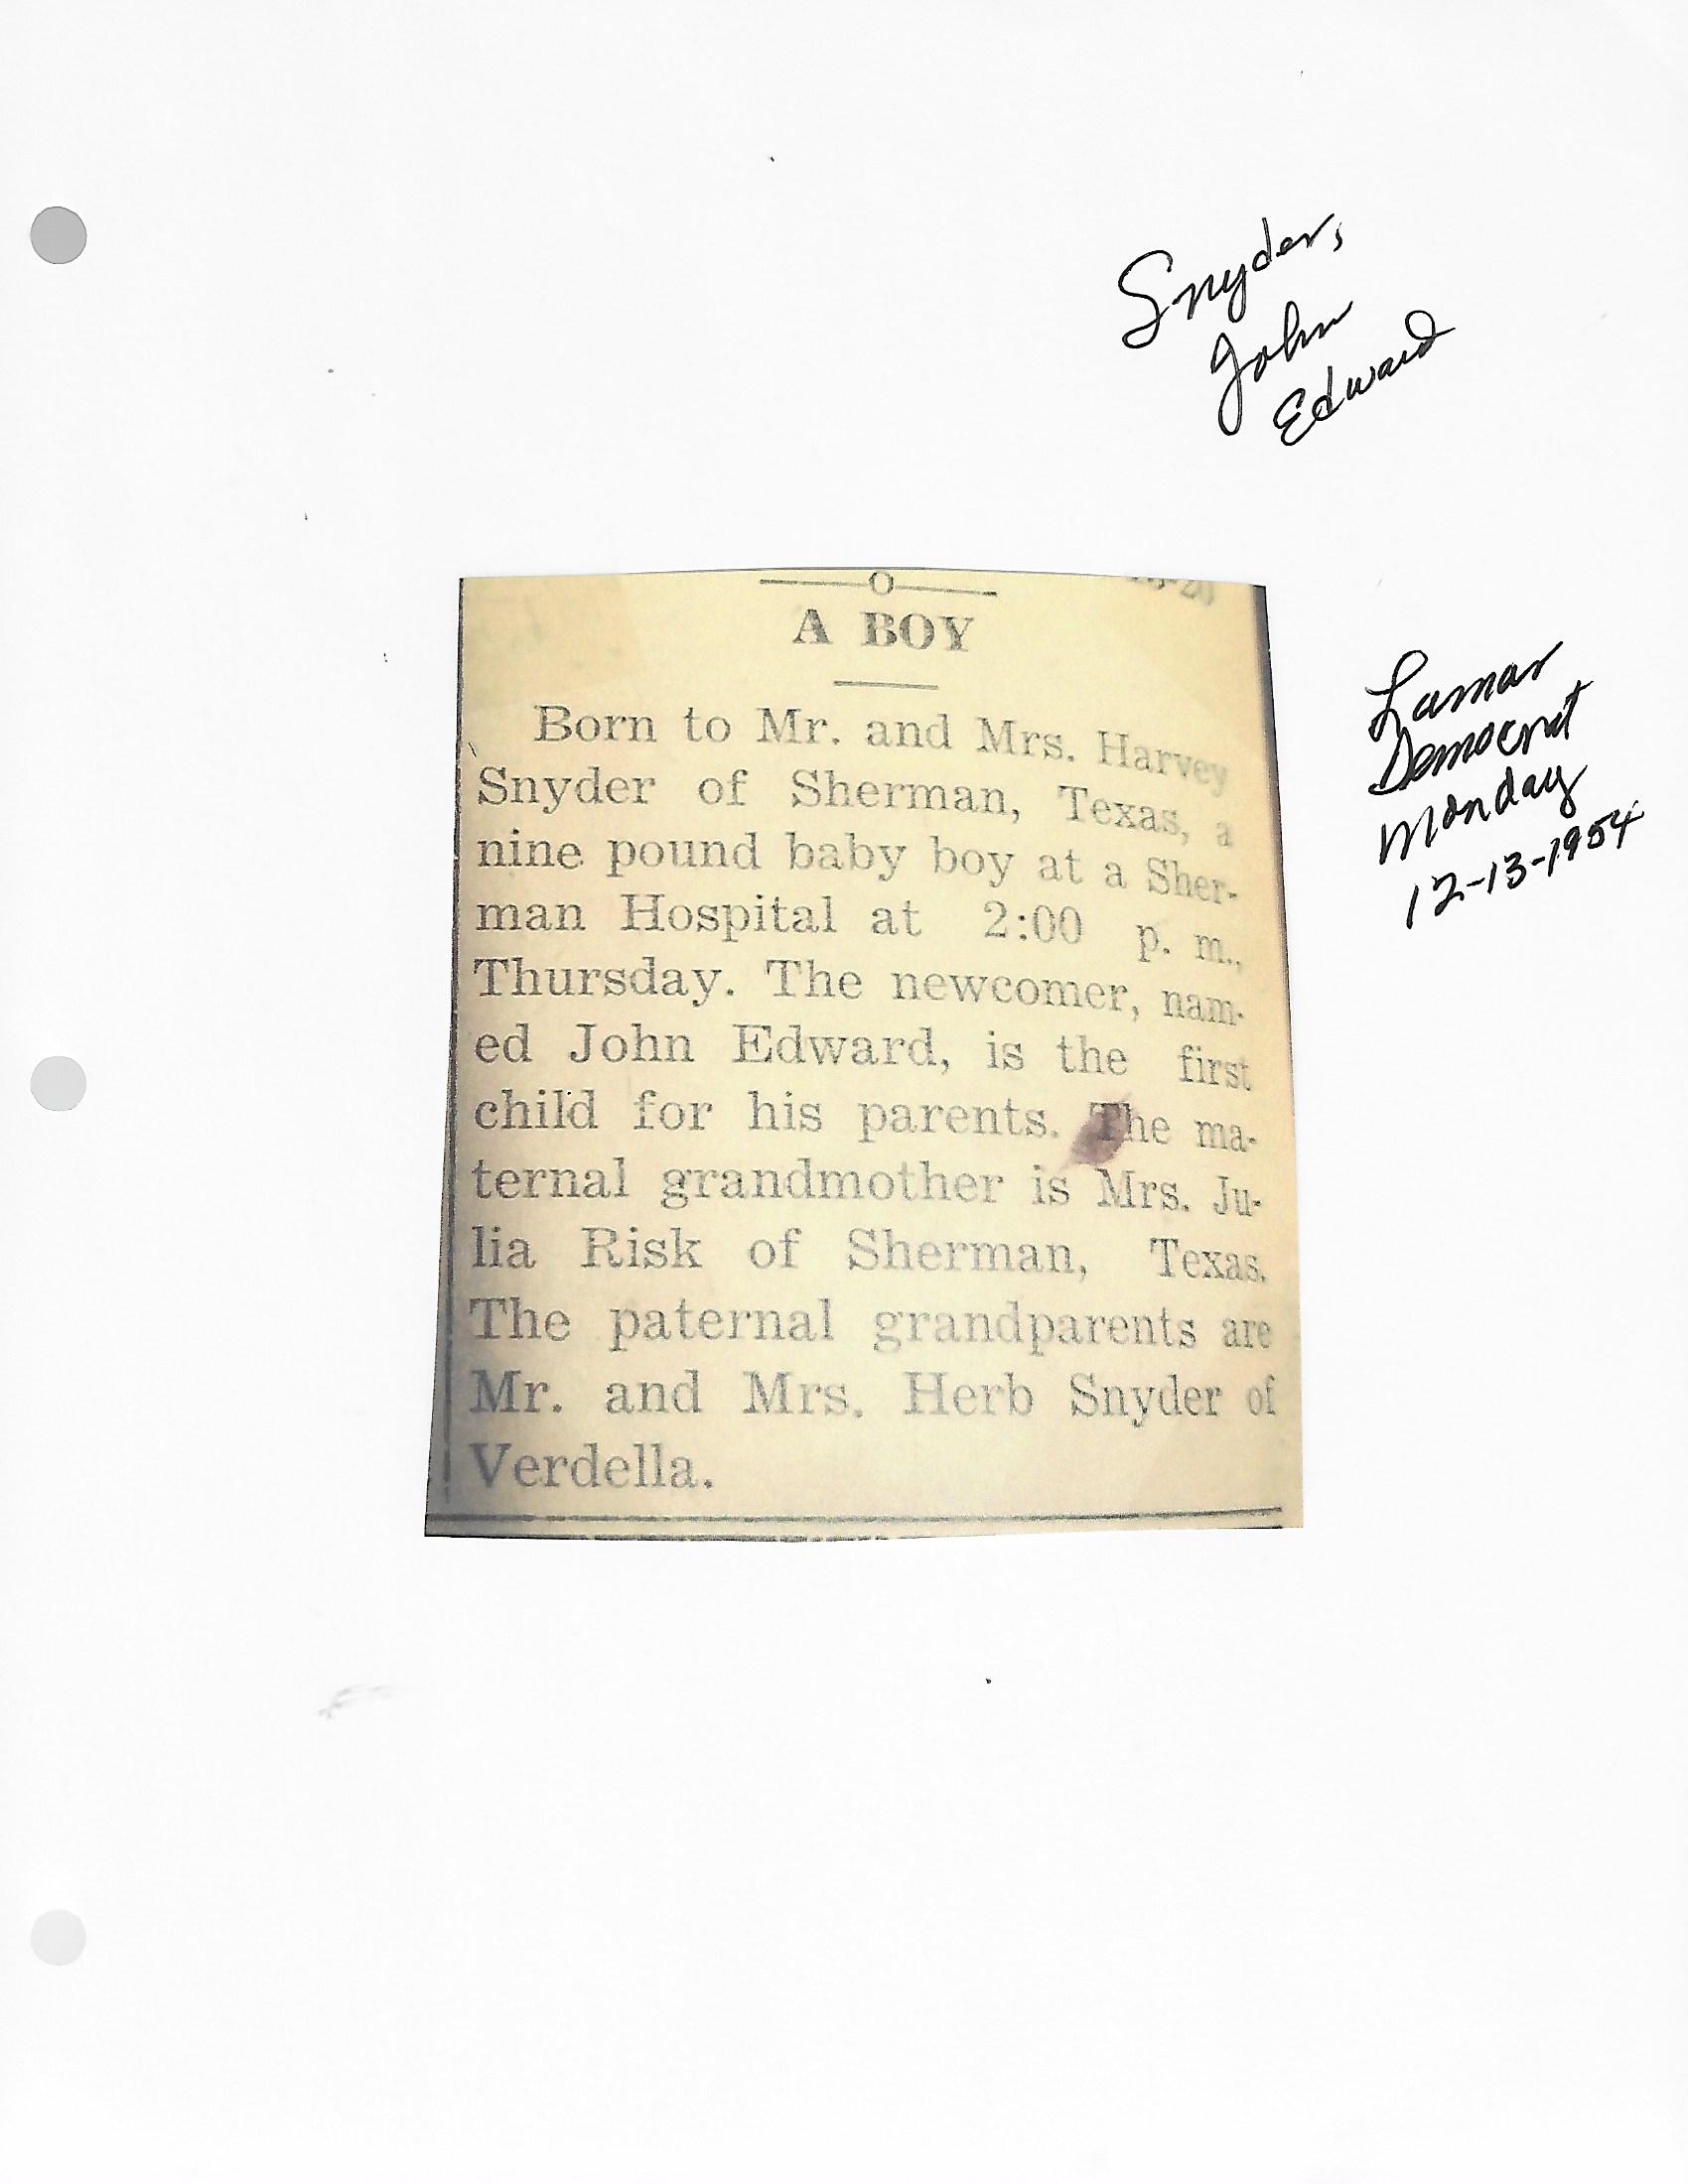 Snyder,
John
Edward
O
A BOY
Born to Mr. and Mrs. Harvey
Snyder of Sherman, Texas, a
nine pound baby boy at a Sher-
man Hospital at 2:00 p. m.,
Thursday. The newcomer, nam-
ed John Edward, is the first
child for his parents. The ma-
ternal grandmother is Mrs. Ju-
lia Risk of Sherman, Texas.
The paternal grandparents are
Mr. and Mrs. Herb Snyder of
Verdella.
Lamar
Democrat
Monday
12-13-1954